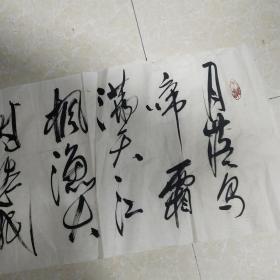 月落乌
啼霜
满天江
枫渔火
对愁眠